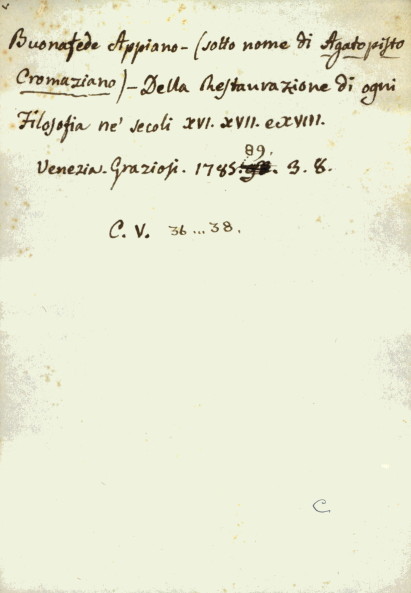 Buonafede Appiano - (sotto nome di Agatopisto
Cromaziano) - Della Restaurazione di ogni
Filosofia ne' secoli XVI. XVII. e XVIII.
Venezia. Graziosi. 1785. 89. 3. 8.
C. V. 36 ... 38.
C